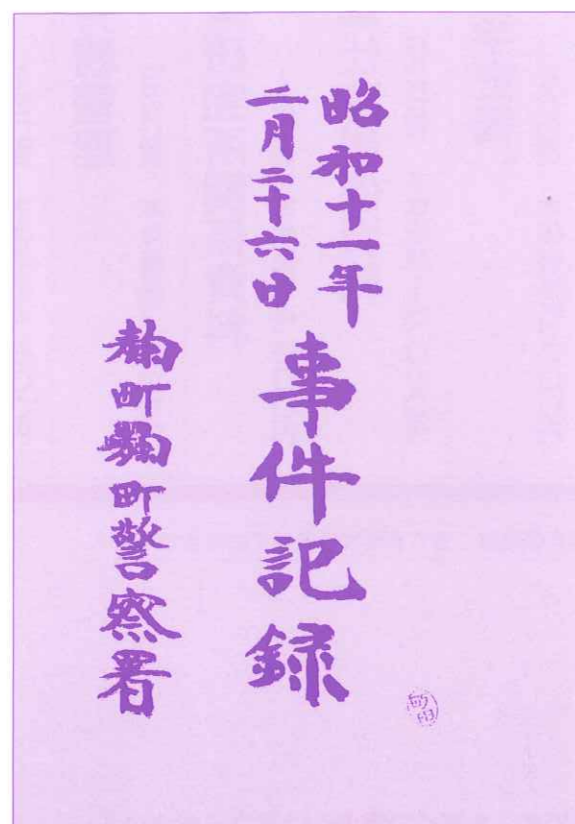 昭和十一年
二月二十六日
事件記録
麹町麹町警察署